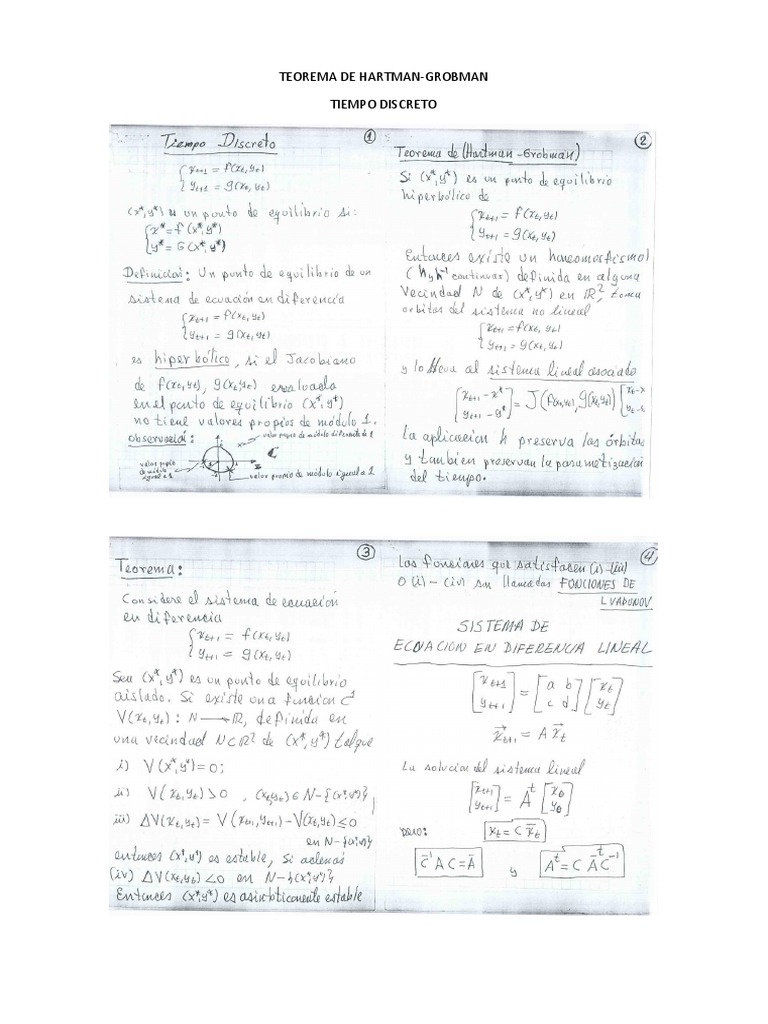 TEOREMA DE HARTMAN-GROBMAN
TIEMPO DISCRETO
①
Tiempo Discreto
{ x_{t+1} = f(x_t, y_t)
{ y_{t+1} = g(x_t, y_t)
(x*, y*) es un punto de equilibrio si:
{ x* = f(x*, y*)
{ y* = G(x*, y*)
Definición: Un punto de equilibrio de un
sistema de ecuación en diferencia
{ x_{t+1} = f(x_t, y_t)
{ y_{t+1} = g(x_t, y_t)
es hiperbólico, si el Jacobiano
de f(x_t, y_t), g(x_t, y_t) evaluada
en el punto de equilibrio (x*, y*)
no tiene valores propios de módulo 1.
observación:
valor propio de módulo diferente de 1
valor propio
de módulo
igual a 1
valor propio de módulo igual a 1
②
Teorema de (Hartman-Grobman)
Si (x*, y*) es un punto de equilibrio
hiperbólico de
{ x_{t+1} = f(x_t, y_t)
{ y_{t+1} = g(x_t, y_t)
Entonces existe un homeomorfismo
(h y h⁻¹ continuas) definida en alguna
vecindad N de (x*, y*) en ℝ², toma
orbitas del sistema no lineal
{ x_{t+1} = f(x_t, y_t)
{ y_{t+1} = g(x_t, y_t)
y lo lleva al sistema lineal asociado
[ x_{t+1} - x* ; y_{t+1} - y* ] = J(f(x_t, y_t), g(x_t, y_t)) [ x_t - x
La aplicacion h preserva las órbitas
y tambien preservan la parametización
del tiempo.
③
Teorema:
Considere el sistema de ecuación
en diferencia
{ x_{t+1} = f(x_t, y_t)
{ y_{t+1} = g(x_t, y_t)
Sea (x*, y*) es un punto de equilibrio
aislado. Si existe una función C¹
V(x_t, y_t) : N → ℝ, definida en
una vecindad N⊂ℝ² de (x*, y*) tal que
i) V(x*, y*) = 0;
ii) V(x_t, y_t) > 0 , (x_t, y_t) ∈ N-{(x*, y*)}
iii) ΔV(x_t, y_t) = V(x_{t+1}, y_{t+1}) - V(x_t, y_t) ≤ 0
en N-{(x*, y*)}
entonces (x*, y*) es estable, Si además
(iv) ΔV(x_t, y_t) < 0 en N-{(x*, y*)}
Entonces (x*, y*) es asintoticamente estable
④
Las funciones que satisfacen (i)-(iii)
o (i)-(iv) son llamadas FONCIONES DE
LYADONOV
SISTEMA DE
ECUACION EN DIFERENCIA LINEAL
[ x_{t+1} ; y_{t+1} ] = [ a b ; c d ] [ x_t ; y_t ]
x⃗_{t+1} = A x⃗_t
La solucion del sistema lineal
[ x_{t+1} ; y_{t+1} ] = A^t [ x_0 ; y_0 ]
x_t = C x̄_t
C⁻¹ A C = Ā
y
A^t = C Ā^t C⁻¹